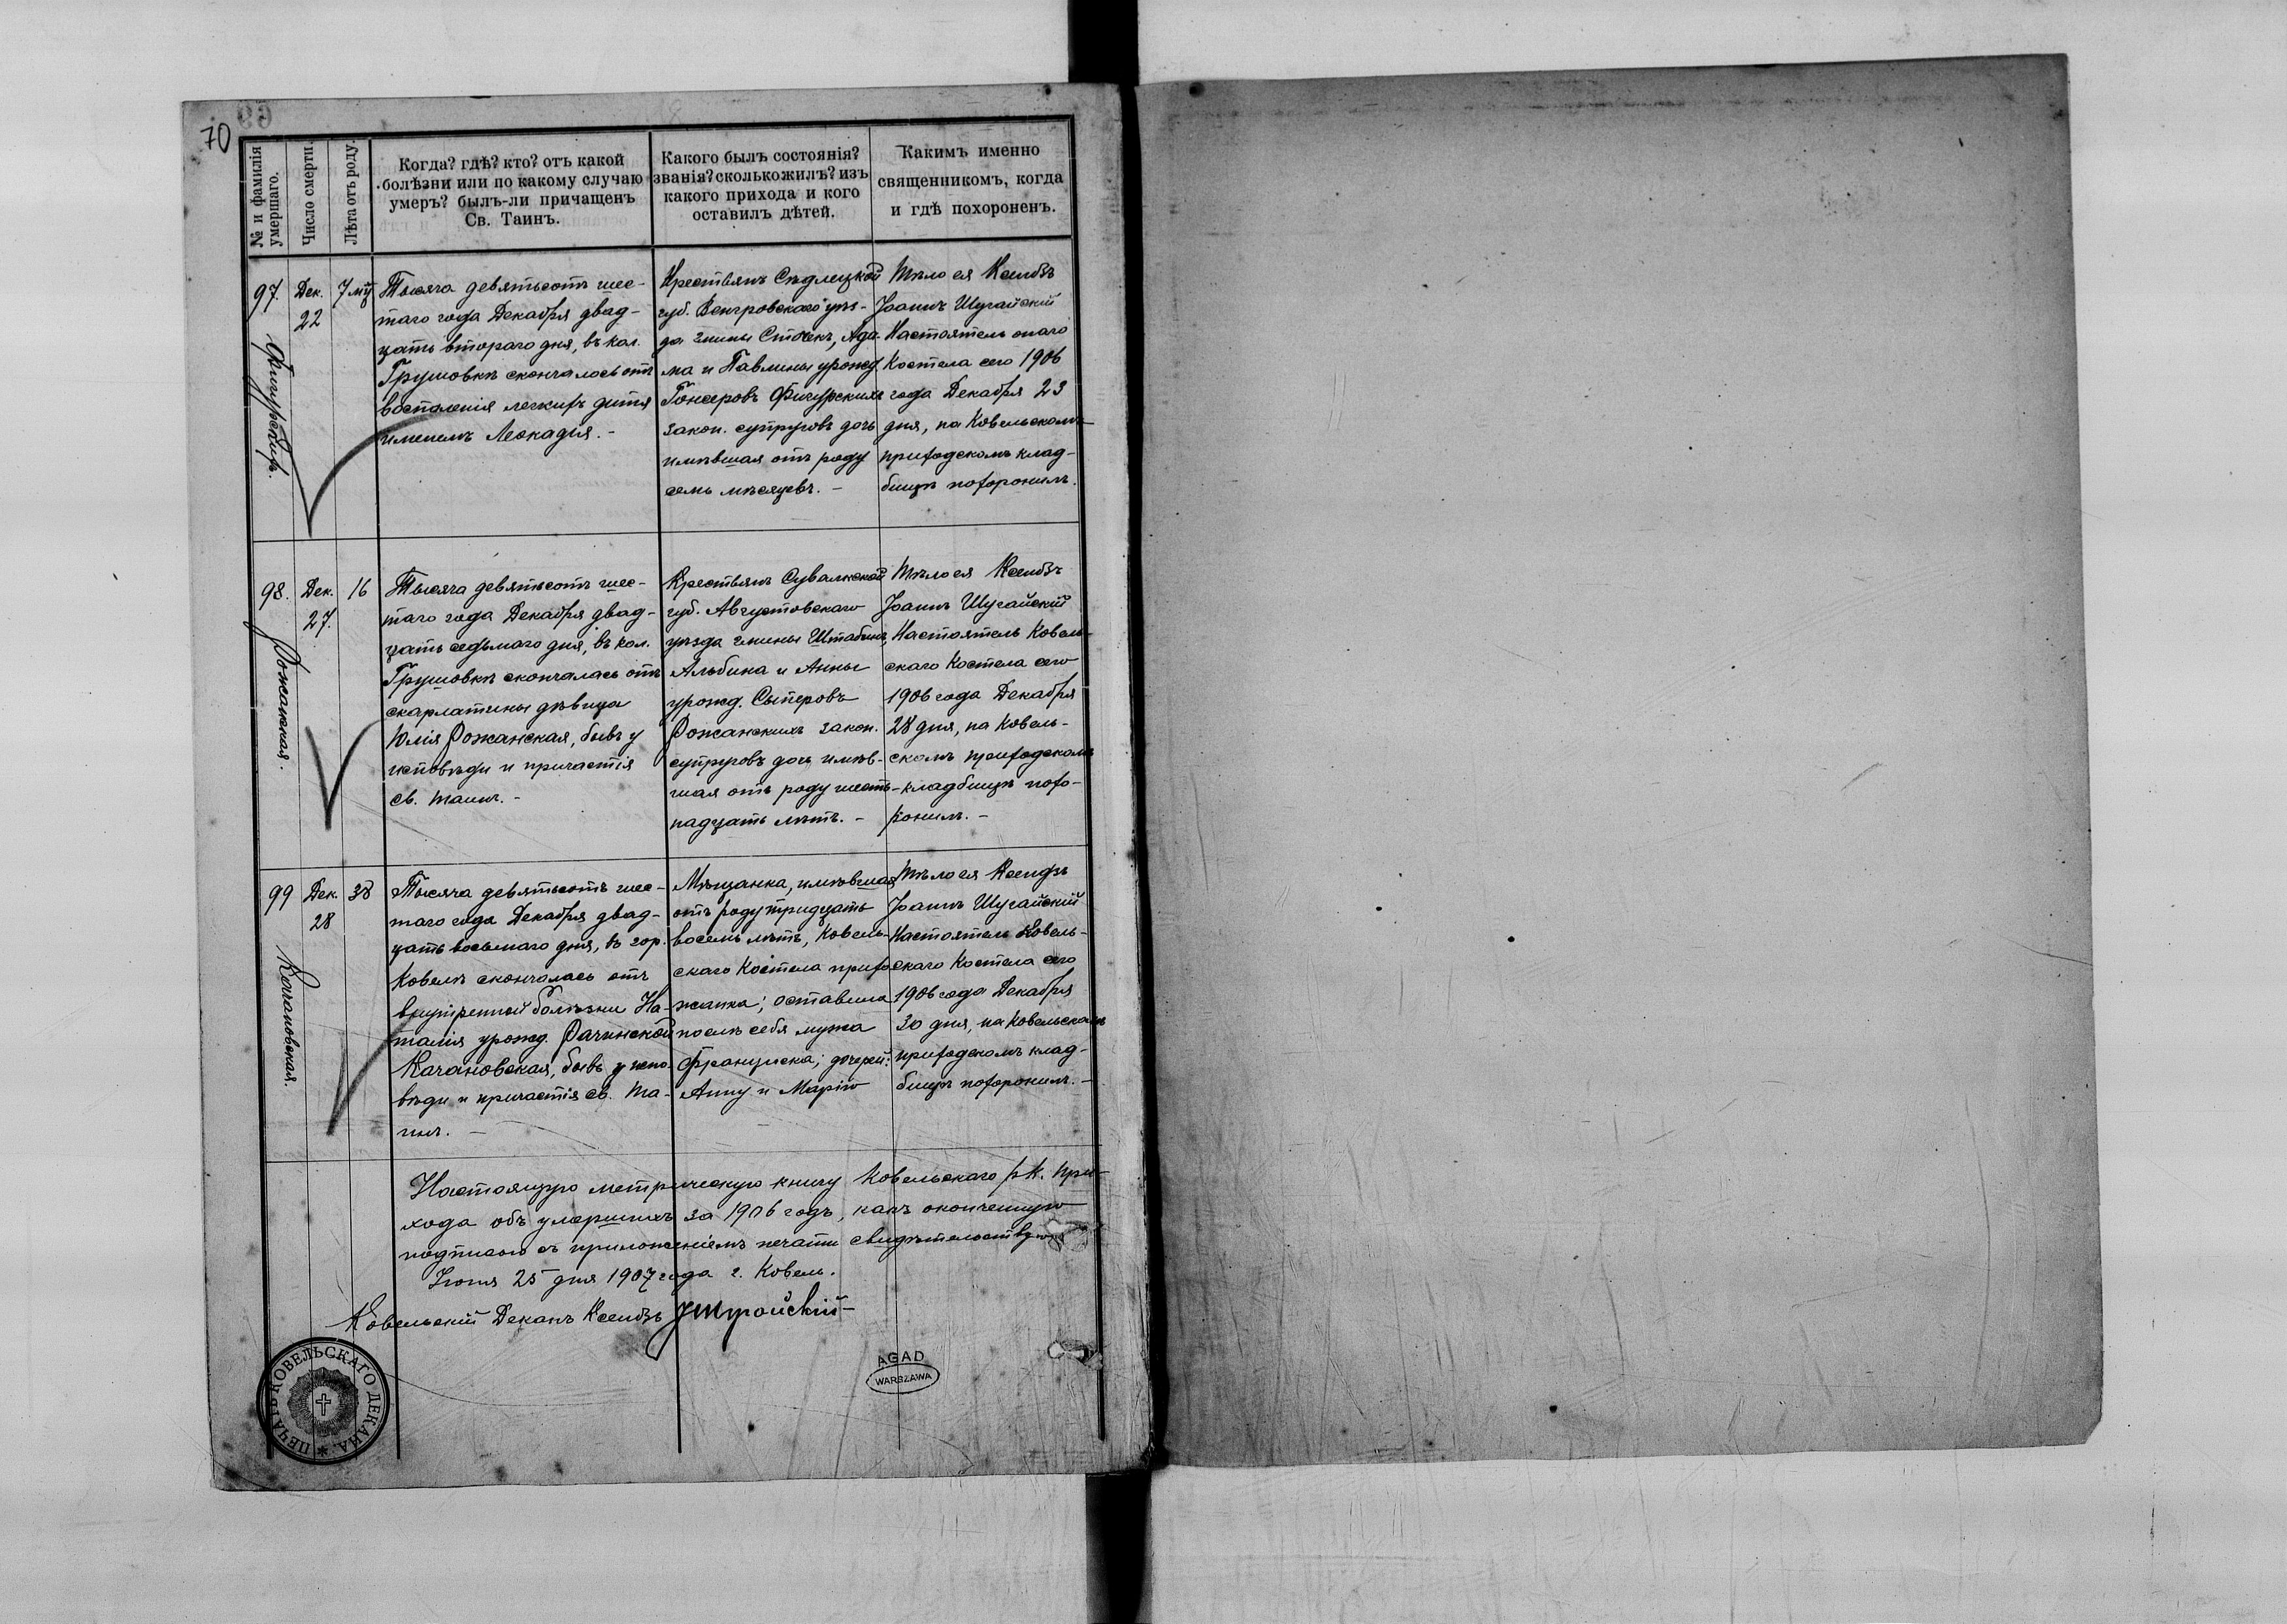 70
№ и фамилія
умершаго.
Число смерти.
Лѣта отъ роду.
Когда? гдѣ? кто? отъ какой
болѣзни или по какому случаю
умеръ? былъ-ли причащенъ
Св. Таинъ.
Какого былъ состоянія?
званія? сколько жилъ? изъ
какого прихода и кого
оставилъ дѣтей.
Какимъ именно
священникомъ, когда
и гдѣ похороненъ.
97.
Дек.
22
7 мц
Тысяча девятьсотъ шес-
таго года Декабря двад-
цать втораго дня, въ кол.
Грушовкѣ скончалось отъ
воспаленія легкихъ дитя
именемъ Леокадія. -
Крестьянъ Сѣдлецкой
губ. Венгровскаго уѣз-
да гмины Сточекъ, Ада-
ма и Павлины урожд.
Фигурскихъ
закон. супруговъ дочь
имѣвшая отъ роду
семь мѣсяцевъ. -
Тѣло ея Ксендзъ
Іоаннъ Шугайскій
Настоятель онаго
Костела сего 1906
года Декабря 23
дня, на Ковельскомъ
приходскомъ клад-
бищѣ похоронилъ.
98.
Рожанская.
Дек.
27.
16
Тысяча девятьсотъ шес-
таго года Декабря двад-
цать седьмаго дня, въ кол.
Грушовкѣ скончалась отъ
скарлатины дѣвица
Юлія Рожанская, бывъ у
исповѣди и причастія
св. таинъ. -
Крестьянъ Сувалкской
губ. Августовскаго
уѣзда гмины Штабинъ,
Альбина и Анны
урожд. Сыперовъ
Рожанскихъ закон.
супруговъ дочь имѣв-
шая отъ роду шест-
надцать лѣтъ. -
Тѣло ея Ксендзъ
Іоаннъ Шугайскій
Настоятель Ковель-
скаго Костела сего
1906 года Декабря
28 дня, на Ковель-
скомъ приходскомъ
кладбищѣ похо-
ронилъ. -
99
Качановская.
Дек.
28
38
Тысяча девятьсотъ шес-
таго года Декабря двад-
цать восьмаго дня, въ гор.
Ковелѣ скончалась отъ
внутренней болѣзни На-
талія урожд. Рачинской
Качановская, бывъ у испо-
вѣди и причастія св. Та-
инъ. -
Мѣщанка, имѣвшая
отъ роду тридцать
восемь лѣтъ, Ковель-
скаго Костела прихо-
жанка; оставила
послѣ себя мужа
Франциска; дочерей:
Анну и Марію
Тѣло ея Ксендзъ
Іоаннъ Шугайскій
Настоятель Ковель-
скаго Костела сего
1906 года Декабря
30 дня, на Ковельскомъ
приходскомъ клад-
бищѣ похоронилъ. -
Настоящую метрическую книгу Ковельскаго р. К. при-
хода объ умершихъ за 1906 годъ, какъ оконченную
подписью съ приложеніемъ печати свидѣтельствую
Іюня 25 дня 1907 года г. Ковель.
Ковельскій Деканъ Ксендзъ
ПЕЧАТЬ КОВЕЛЬСКАГО ДЕКАНА.
AGAD
WARSZAWA